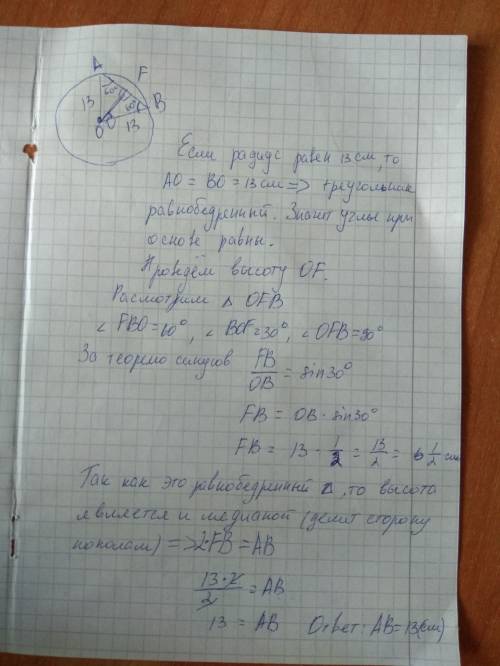 A
F
60°
13
60°
B
O
13
Если радиус равен 13 см, то
AO = BO = 13 см => треугольник
равнобедренный. Значит углы при
основе равны.
Проведём высоту OF.
Рассмотрим Δ OFB
∠ FBO = 60°, ∠ BOF = 30°, ∠ OFB = 90°
За теоремо синусов FB/OB = sin 30°
FB = OB · sin 30°
FB = 13 · 1/2 = 13/2 = 6 1/2 см
Так как это равнобедренный Δ, то высота
является и медианой (делит сторону
пополам) => 2·FB = AB
13·2/2 = AB
13 = AB Ответ: AB = 13 (см)